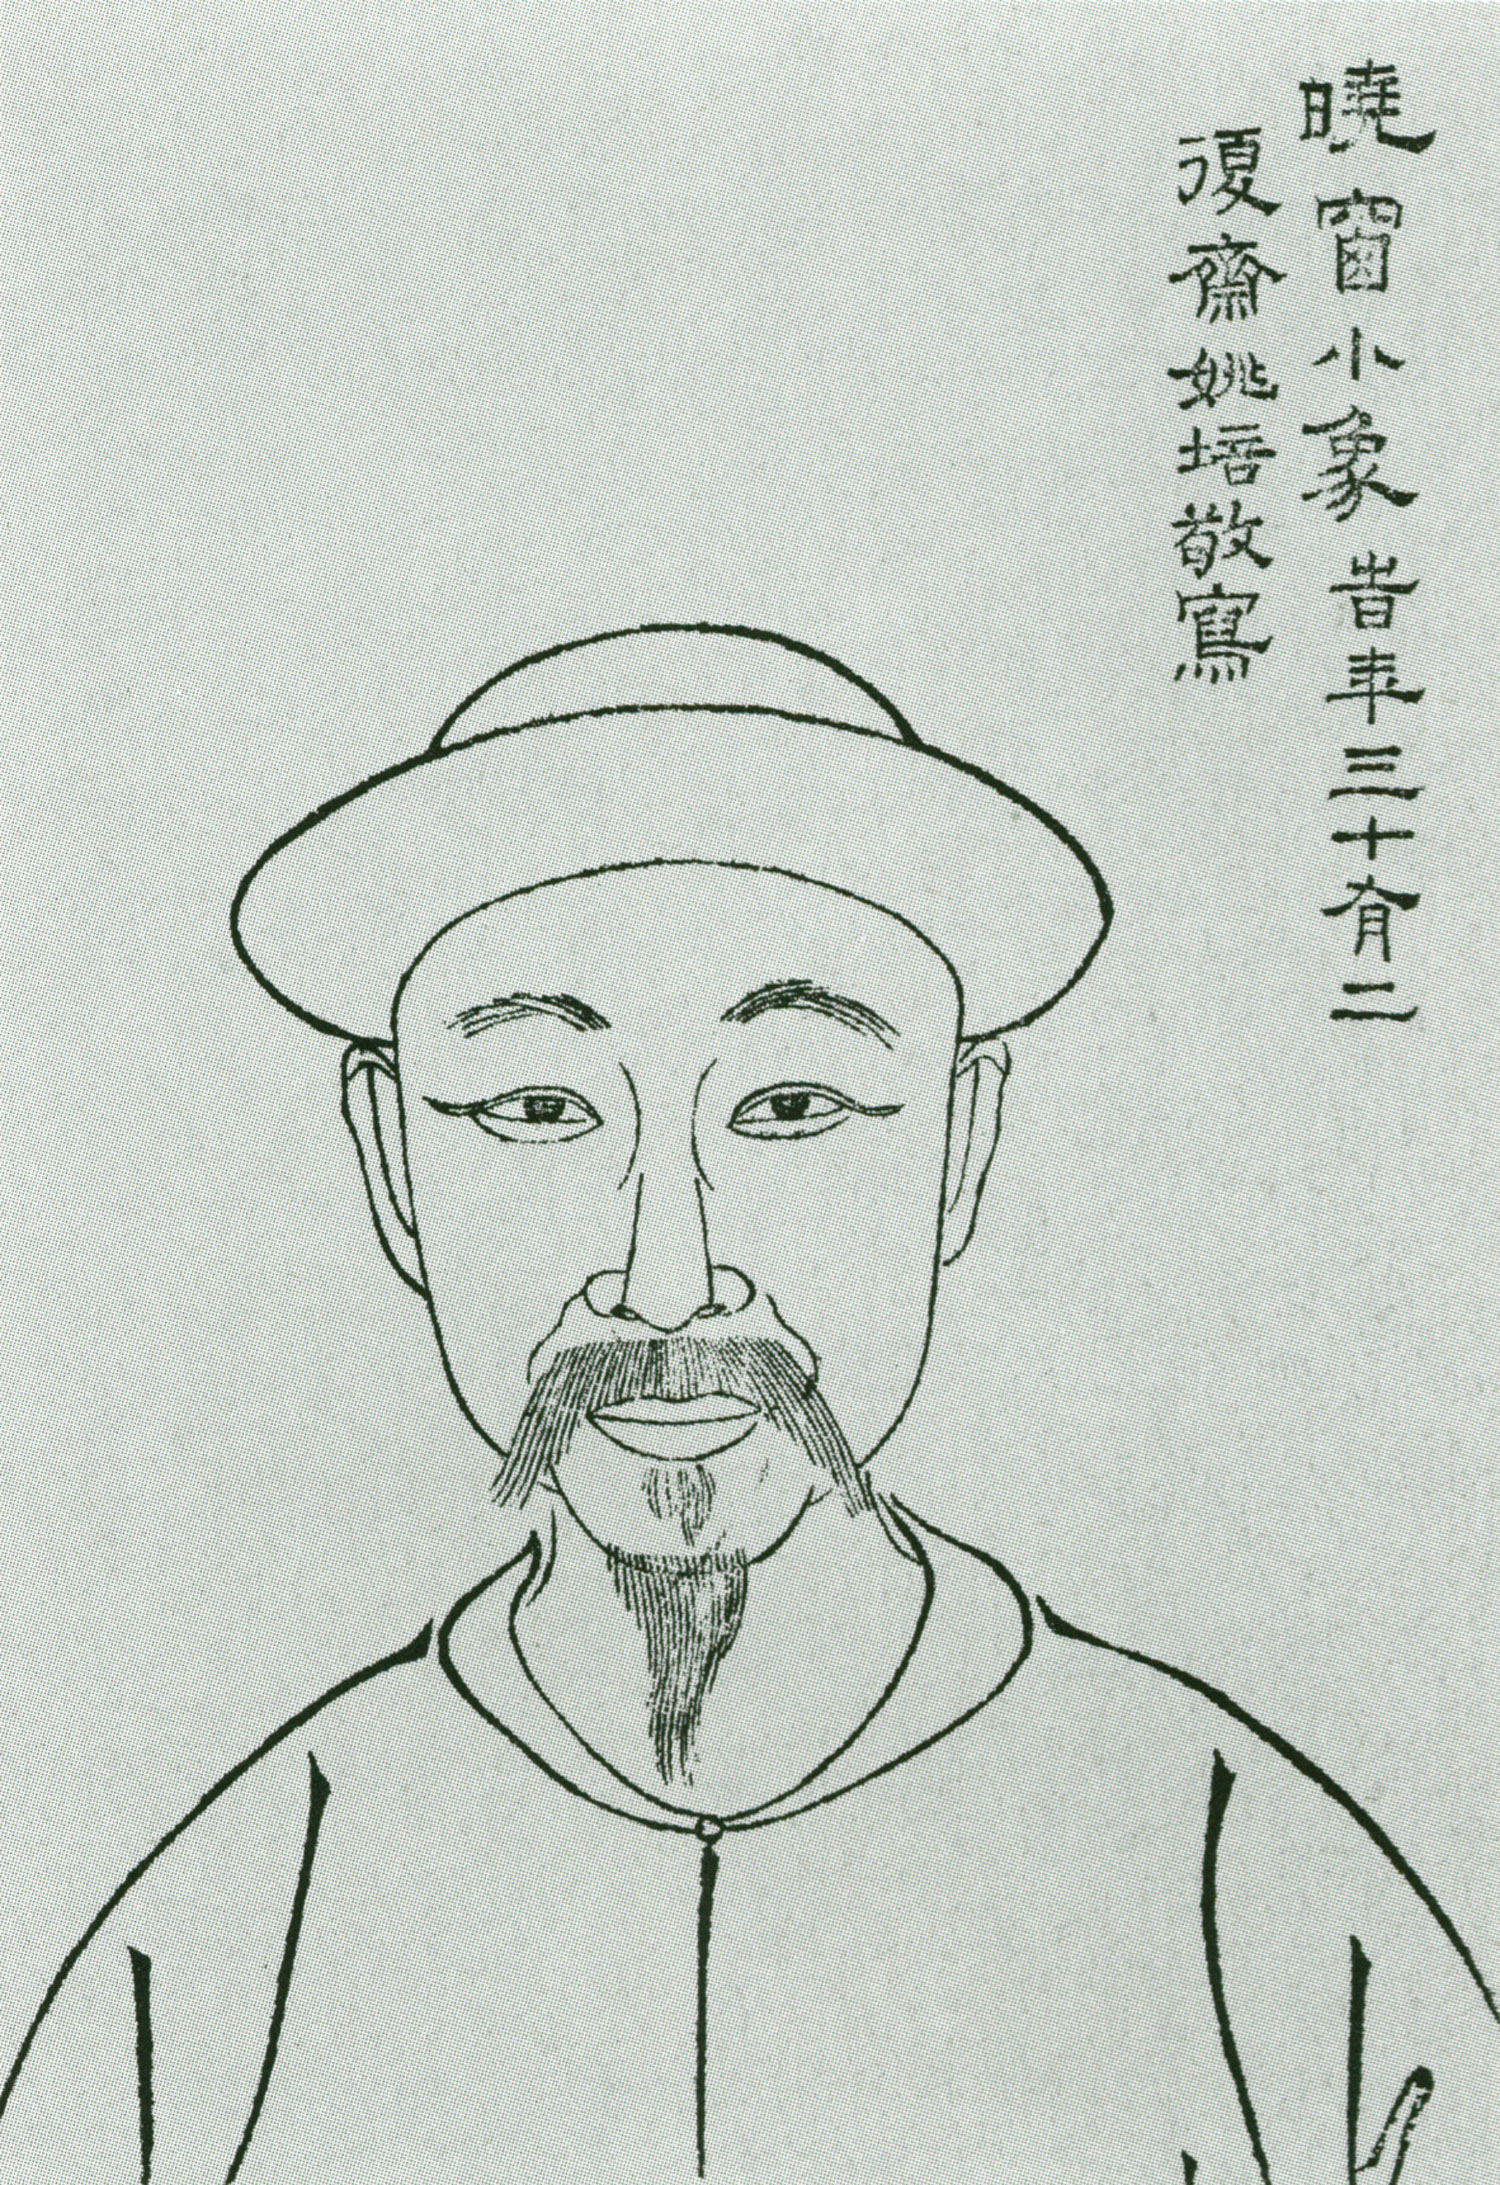 曉窗小象旹年三十有二
復齋姚培敬寫